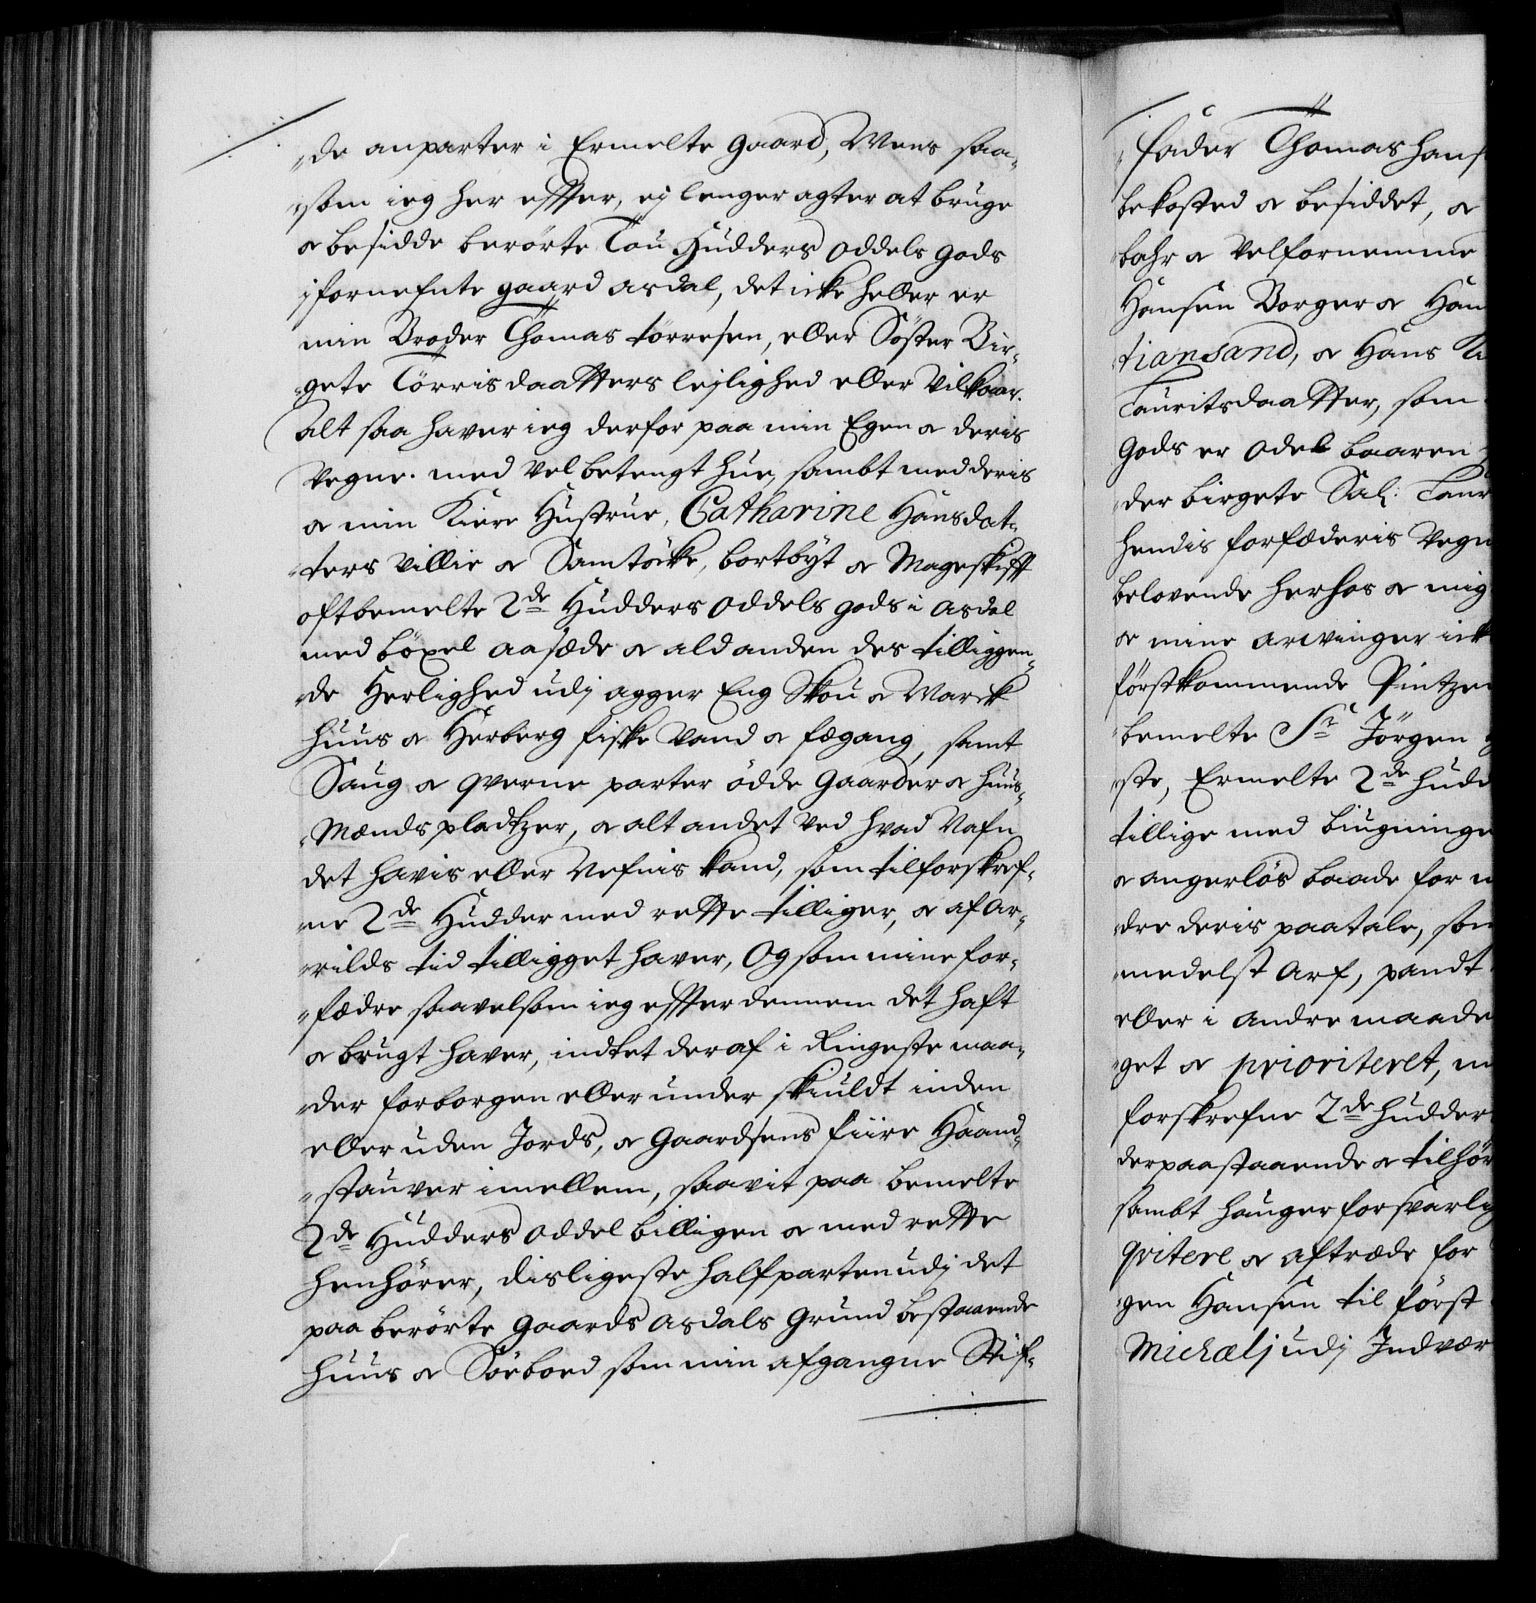 de anparter i Ermelte gaard, Mens saa-
som ieg her effter, ej lenger agter at bruge
& besidde berørte Tou Hudders oddels gods
j fornefnte gaard asdal, det icke heller er
min Broder Thomas törresen, eller Söster Bir-
gete Törrisdaatters lejlighed eller Vilkaar.
Alt saa haver ieg derfor paa min Egen & deris
Vegne. med vel betengt hue, sambt med deris
& min Kiere Hustrue, Catharine Hansdat-
ters Villie & Samtöcke, bortbyt & Mageskifft
oftbemelte 2de Hudders oddels gods i asdal
med böxel aasæde & ald anden des tilliggen-
de Herlighed udj agger Eng Skou & Marck
huus & Herberg fiske Vand & fægang, samt
Saug & qverne parter ödde gaarder & huus-
Mænds pladtzer, & alt andet ved hvad Nafn
det havis eller Nefnis kand, som tilforskref-
ne 2de Hudder med rette tilliger, & af Ar-
rilds tid tilligget haver, Og som mine for-
fædre saavelsom ieg effter dennem det haft
& brugt haver, indtet deraf i Ringeste maa-
der forborgen eller under skiuldt inden
eller uden Jords, & gaardsens fiire Haand-
stauver imellem, saavit paa bemelte
2de Hudders oddel billigen & med rette
henhörer, disligeste halfparten udj det
paa berörte gaards asdals grund bestaaende
huus & Söeboed som min afgangne Stif-
fader Thomas Hans
bekosted & besiddet, &
bahr & velfornemme
Hansen Borger & Han
tiansand, & Hans
Lauritsdaatter, som
gods er odel baaren
der birgete Sal: Laur
hendis forfæderis Vegn
belovende herhos & mig
& mine arvinger ick
förstkommende Pintze
bemelte Sr Jörgen
ste, Ermelte 2de hud
tillige med biugninge
& angerlös baade for
dre deris paatale, som
medelst Arf, pandt
eller i andre maade
get & prioriteret,
forskrefne 2de hudder
derpaastaaende & tilhör
sambt hauger forsvarlig
qvitere & aftræde for
gen Hansen til först
Michælj udj Indvær